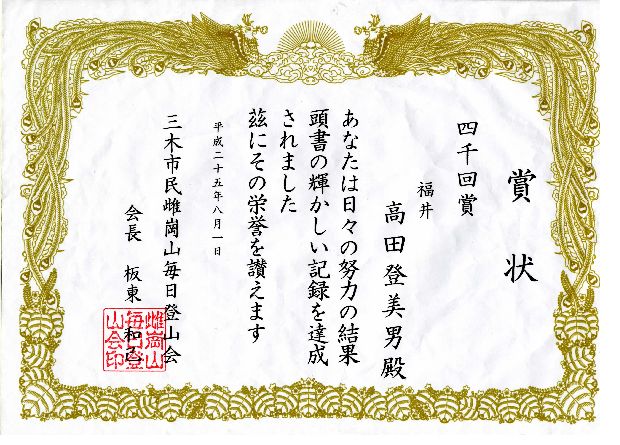 賞状
四千回賞
福井
高田登美男殿
あなたは日々の努力の結果
頭書の輝かしい記録を達成
されました
茲にその栄誉を讃えます
平成二十五年八月一日
三木市民雌岡山毎日登山会
会長 板東 和
雌岡山
毎日登
山会印